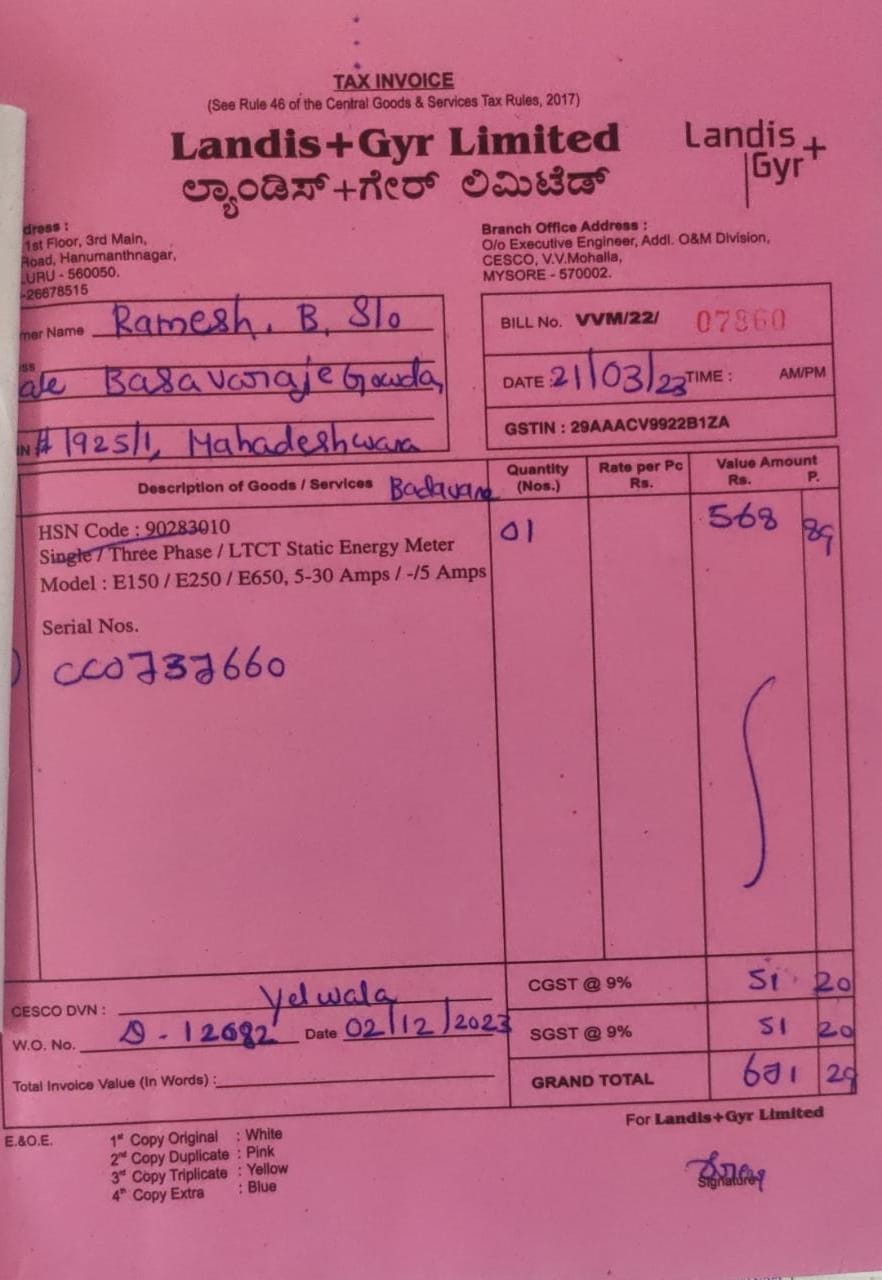 TAX INVOICE
(See Rule 46 of the Central Goods & Services Tax Rules, 2017)
Landis+Gyr Limited
ಲ್ಯಾಂಡಿಸ್+ಗೇರ್ ಲಿಮಿಟೆಡ್
Landis
Gyr+
dress :
1st Floor, 3rd Main,
Road, Hanumanthnagar,
URU - 560050.
-26678515
Branch Office Address :
O/o Executive Engineer, Addl. O&M Division,
CESCO, V.V.Mohalla,
MYSORE - 570002.
mer Name Ramesh. B. S/o
ss
ale Basavaraje Gowda,
IN # 1925/1, Mahadeshwara
BILL No. VVM/22/ 07860
DATE : 21/03/23 TIME : AM/PM
GSTIN : 29AAACV9922B1ZA
Description of Goods / Services Badavane
Quantity (Nos.)
Rate per Pc Rs.
Value Amount Rs. P.
HSN Code : 90283010
Single / Three Phase / LTCT Static Energy Meter
Model : E150 / E250 / E650, 5-30 Amps / -/5 Amps
01
568 89
Serial Nos.
CC0737660
CESCO DVN : Yelwala
W.O. No. D - 12682 Date 02/12/2023
Total Invoice Value (In Words) :
CGST @ 9% 51 20
SGST @ 9% 51 20
GRAND TOTAL 671 29
For Landis+Gyr Limited
E.&O.E.
1st Copy Original : White
2nd Copy Duplicate : Pink
3rd Copy Triplicate : Yellow
4th Copy Extra : Blue
Signature